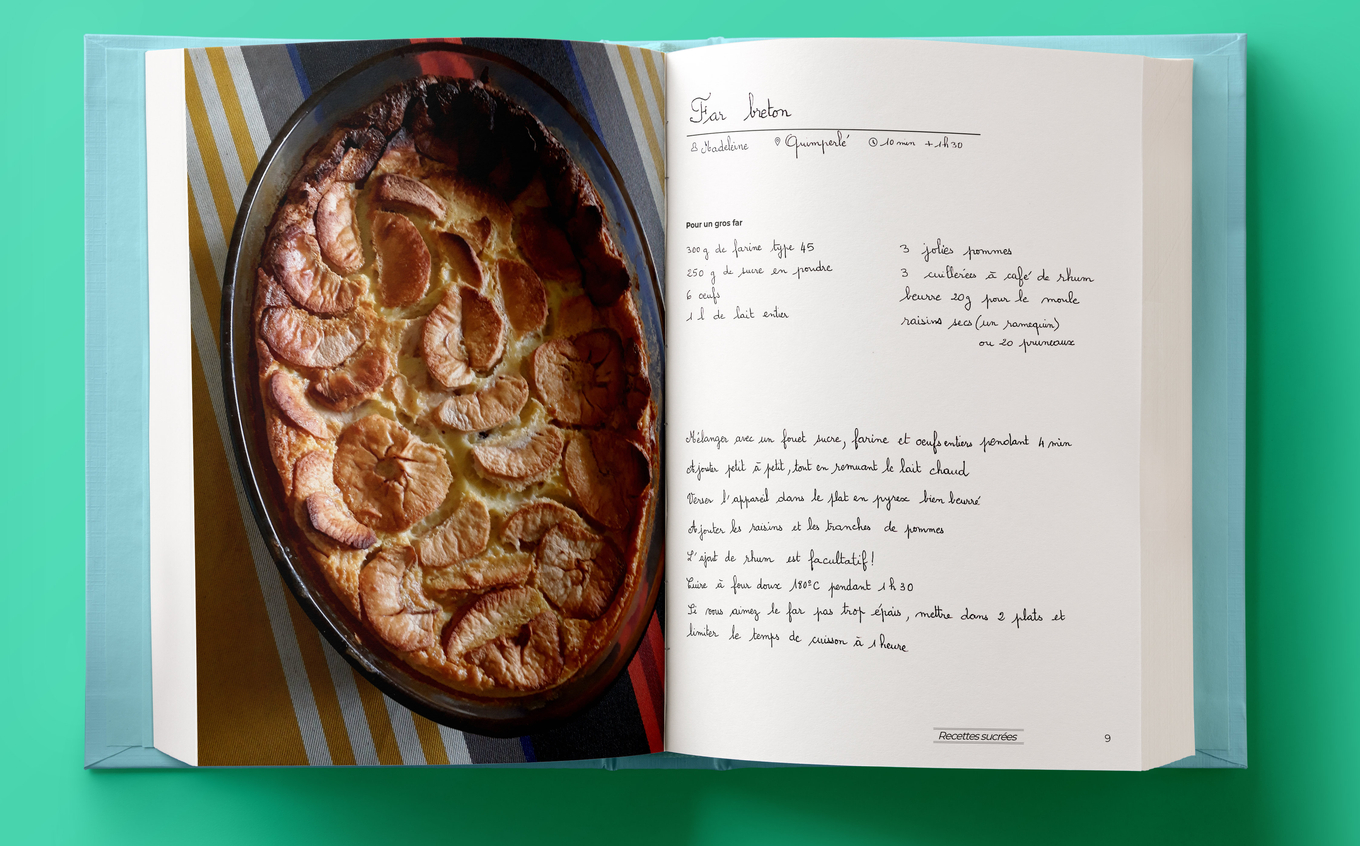 Far breton
Madeleine Quimperlé 10 min + 1h30
Pour un gros far
300 g de farine type 45
250 g de sucre en poudre
6 oeufs
1 l de lait entier
3 jolies pommes
3 cuillerées à café de rhum
beurre 20g pour le moule
raisins secs (un ramequin)
ou 20 pruneaux
Mélanger avec un fouet sucre, farine et oeufs entiers pendant 4 min
Ajouter petit à petit, tout en remuant le lait chaud
Verser l'appareil dans le plat en pyrex bien beurré
Ajouter les raisins et les tranches de pommes
L'ajout de rhum est facultatif !
Cuire à four doux 180°C pendant 1h30
Si vous aimez le far pas trop épais, mettre dans 2 plats et
limiter le temps de cuisson à 1 heure
Recettes sucrées 9